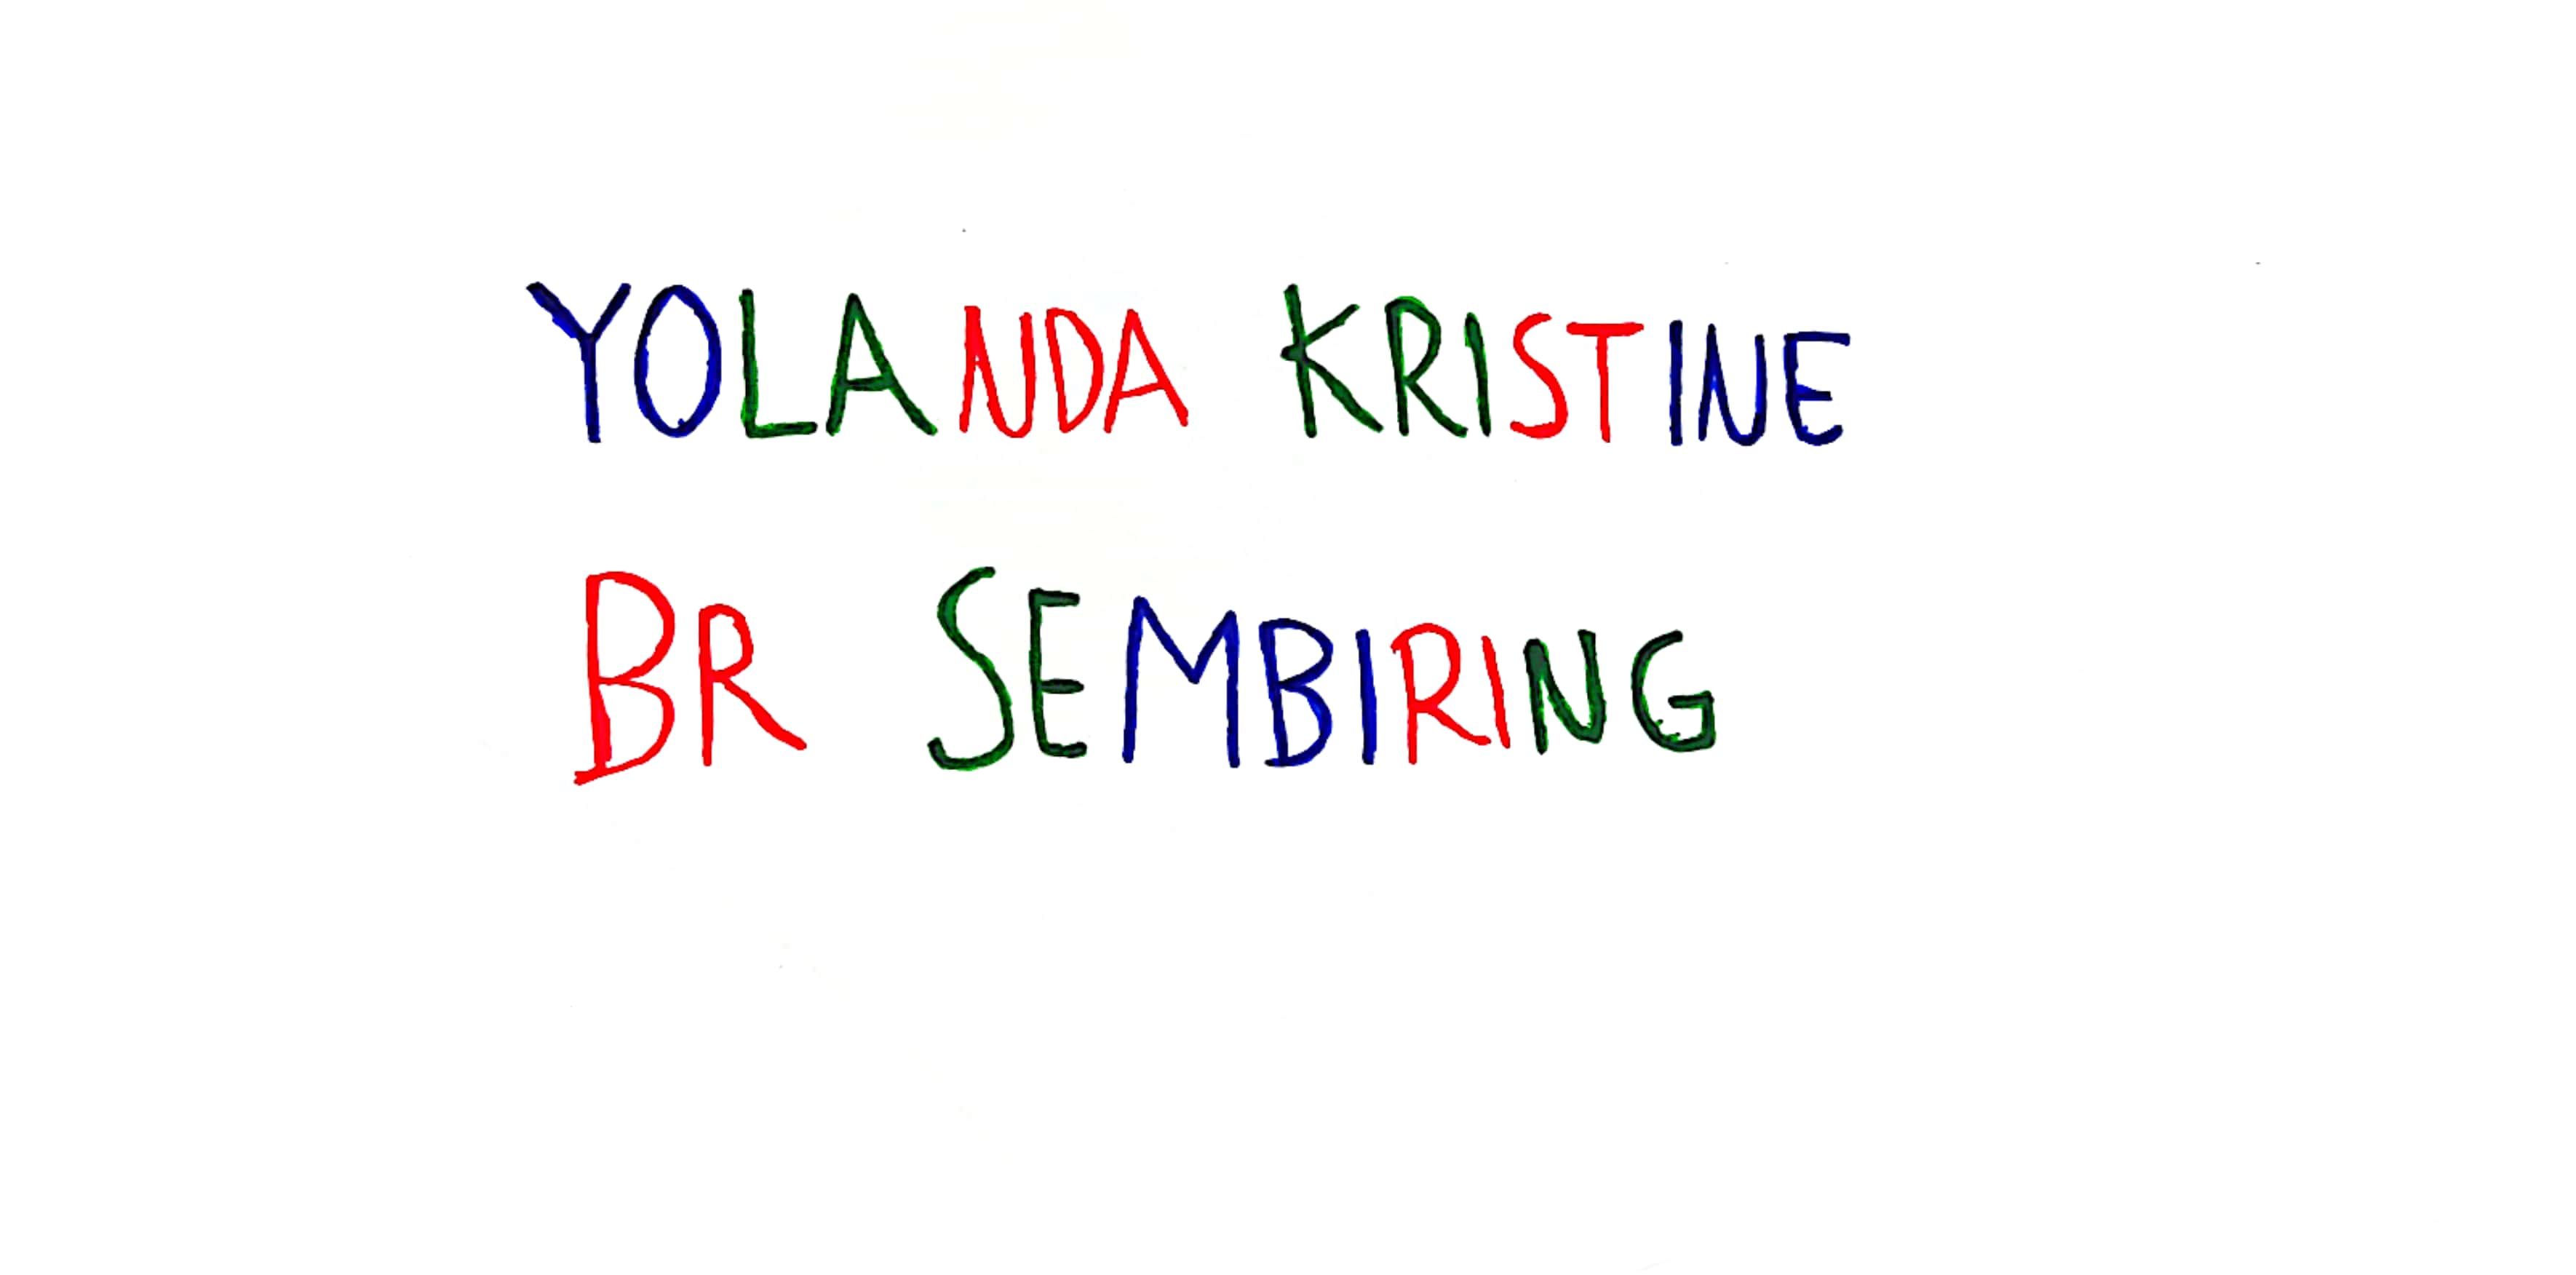 YOLANDA KRISTINE
BR SEMBIRING